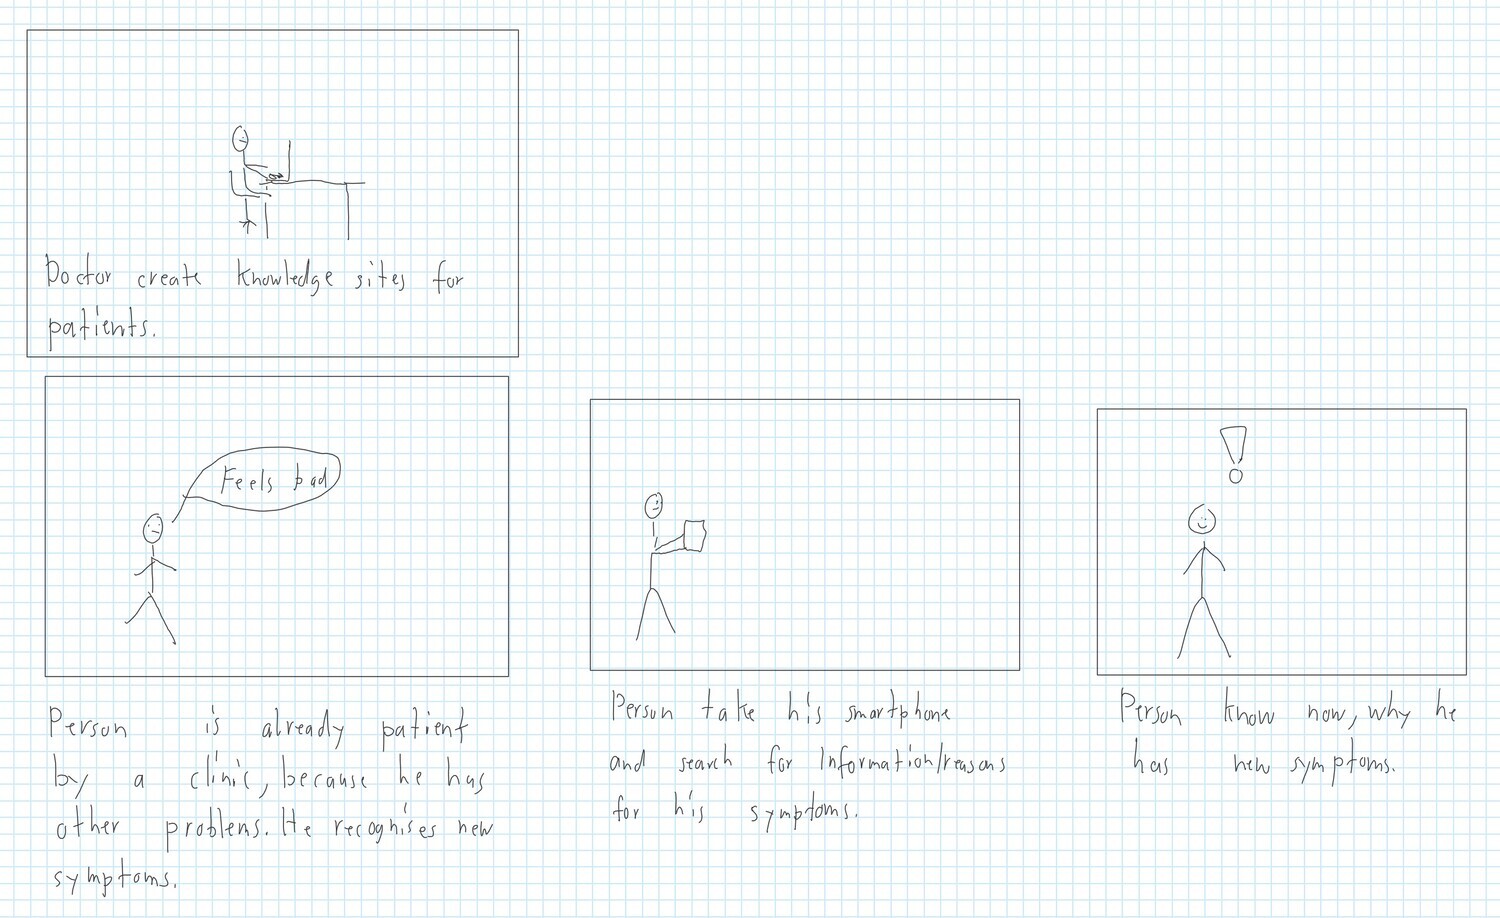 Doctor create knowledge sites for
patients.
Feels bad
Person is already patient
by a clinic, because he has
other problems. He recognises new
symptoms.
Person take his smartphone
and search for Information/reasons
for his symptoms.
Person know now, why he
has new symptoms.